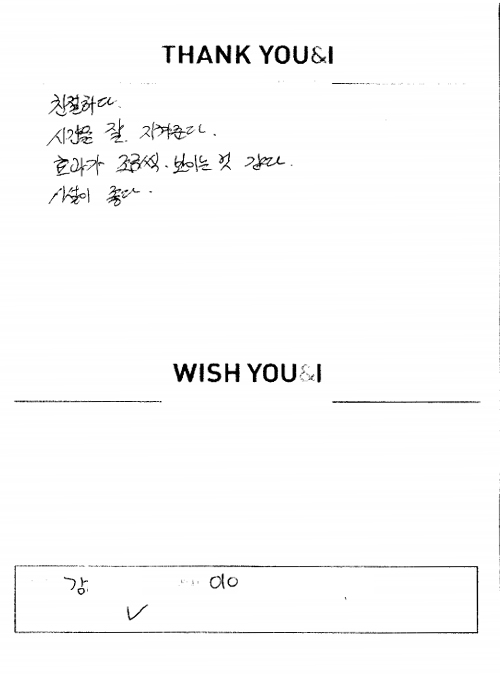 THANK YOU&I
친절하다.
시간을 잘 지켜준다.
효과가 조금씩 보이는 것 같다.
시설이 좋다.
WISH YOU&I
감 이o